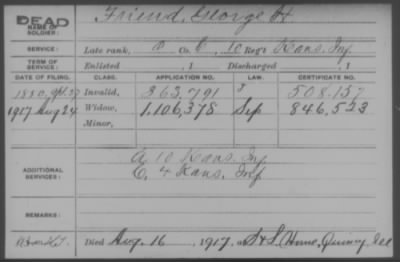 DEAD
NAME OF SOLDIER: Friend, George H.
SERVICE: Late rank, Co. C, 10 Reg't Kans. Inf.
TERM OF SERVICE: Enlisted , 1 Discharged , 1
DATE OF FILING. CLASS. APPLICATION NO. LAW. CERTIFICATE NO.
1880, Invalid, 363,791 508,157
1917 Aug 24 Widow, 1,106,378 Sep 846,523
Minor,
ADDITIONAL SERVICES: A. 10 Kans. Inf
C. 4 Kans. Inf
REMARKS:
Died Aug. 16, 1917, at S & S. Home, Quincy, Ill